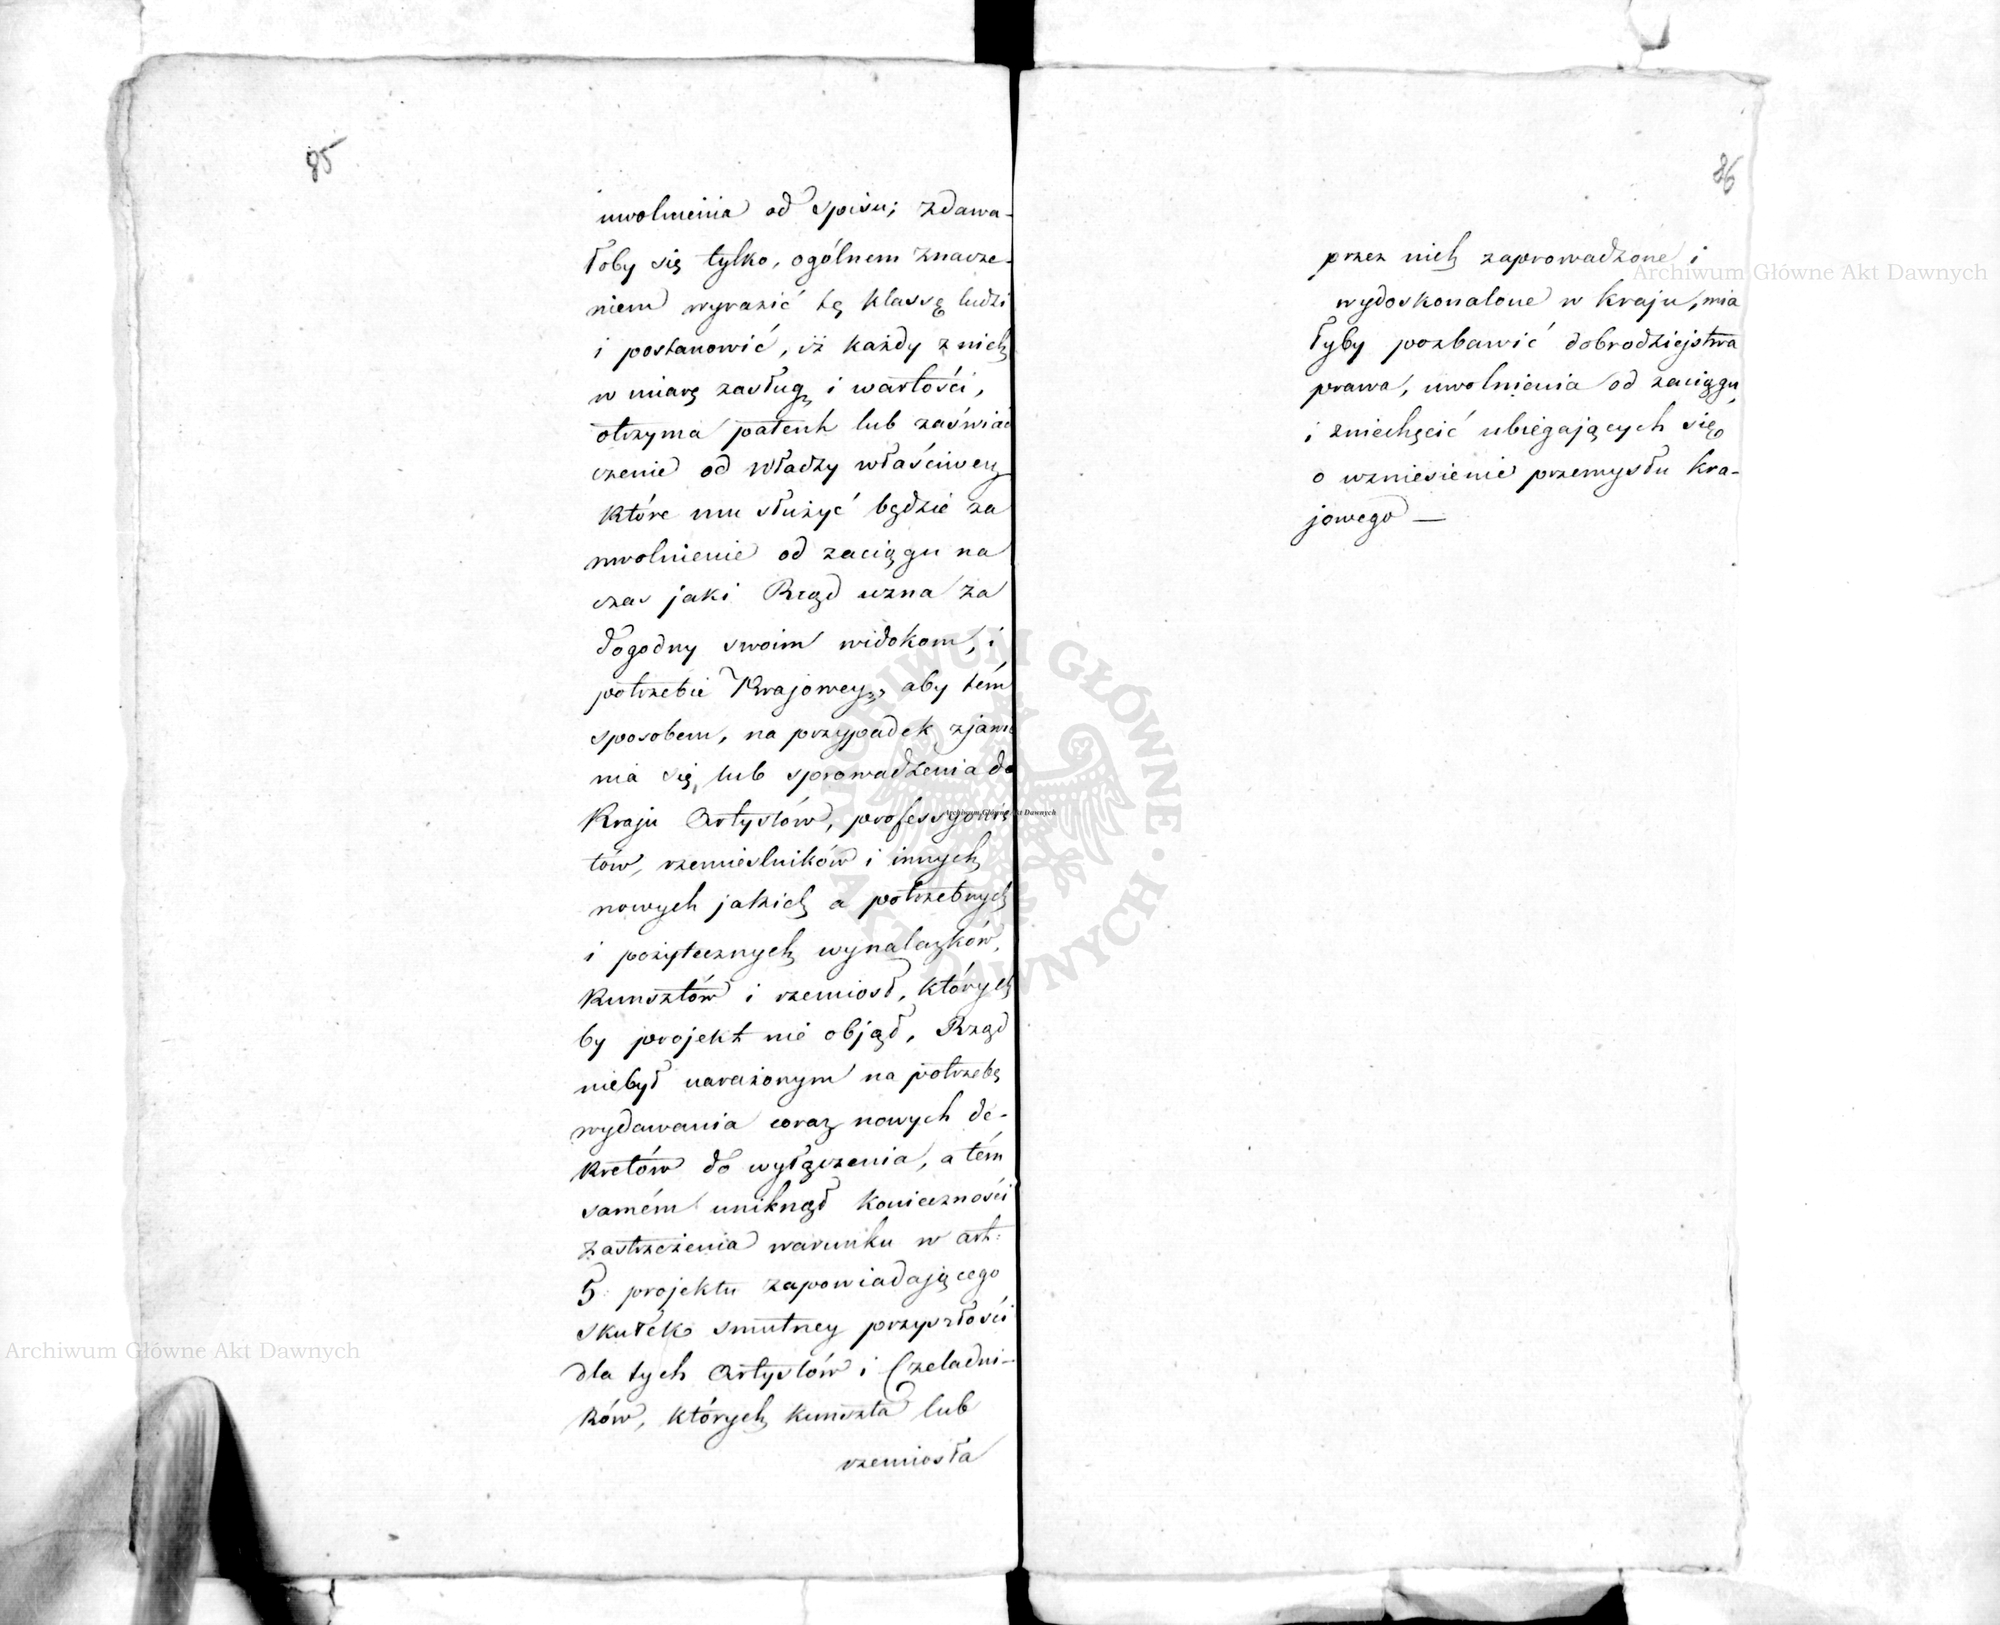 85
uwolnienia od spisu; zdawa-
łoby się tylko, ogólnem znacze-
niem wyrazić tę klassę ludzi
i postanowić, iż każdy z nich
w miarę zasług i wartości,
otrzyma patent lub zaświad
czenie od władzy właściwey
które mu służyć będzie za
uwolnienie od zaciągu na
czas jaki Rząd uzna za
dogodny swoim widokom, i
potrzebie Krajowey, aby tém
sposobem, na przypadek zjawie
nia się, lub sprowadzenia do
Kraju Artystów, professyonis
tów, rzemieslników i innych
nowych jakich a potrzebnych
i pożytecznych wynalazków,
Kunsztów i rzemiosł, których
by projekt nie objął, Rząd
niebył narażonym na potrzebę
wydawania coraz nowych de-
kretów do wyłączenia, a tém
samém uniknął konieczności
zastrzeżenia warunku w art:
5 projektu zapowiadającego
skutek smutney przyszłości
dla tych Artystów i Czeladni-
ków, których kunszta lub
rzemiosła
86
przez nich zaprowadzone i
wydoskonalone w kraju, mia
łyby pozbawić dobrodziejstwa
prawa, uwolnienia od zaciągu,
i zniechęcić ubiegających się
o wzniesienie przemysłu kra-
jowego —
Archiwum Główne Akt Dawnych
Archiwum Główne Akt Dawnych
Archiwum Główne Akt Dawnych
ARCHIWUM GŁÓWNE AKT DAWNYCH